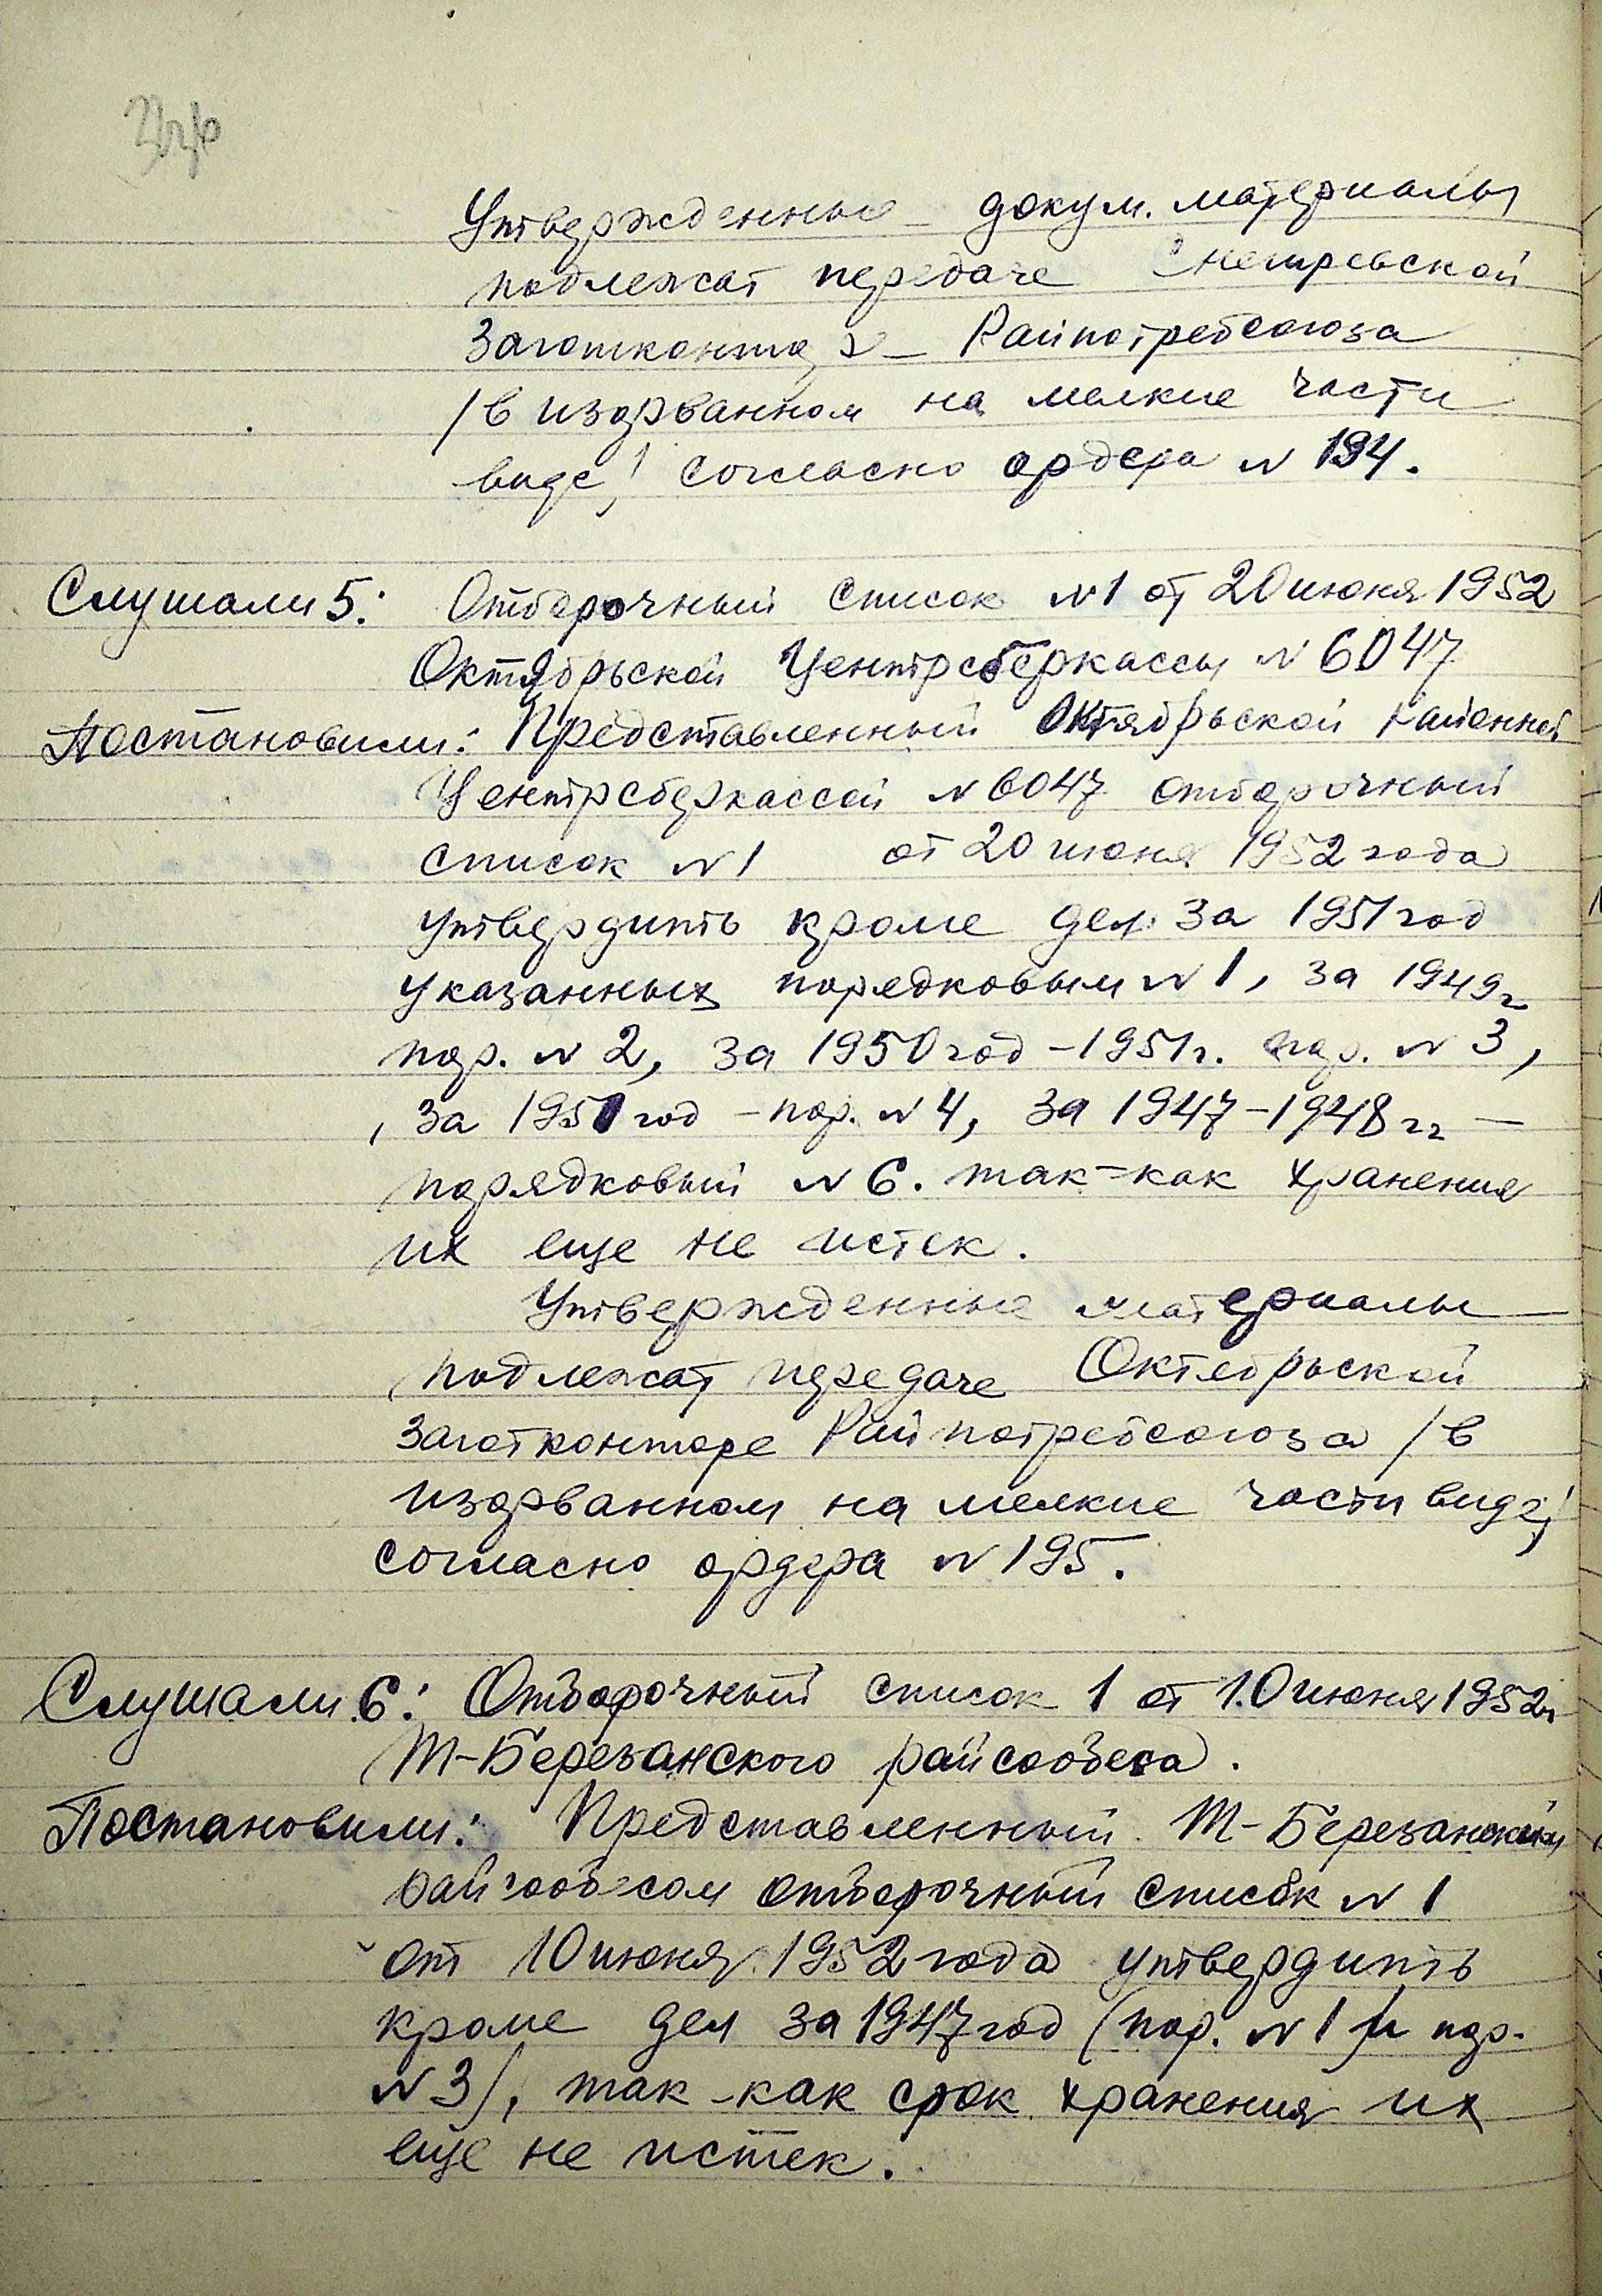 Утвержденные докум. материалы
подлежат передаче Снегиревской
Заготконторе Райпотребсоюза
/в изорванном на мелкие части
виде/ согласно ордера №194.
Слушали 5: Отборочный список №1 от 20 июня 1952
Октябрьской Центрсберкассы №6047
Постановили: Представленный Октябрьской районной
Центрсберкассой №6047 отборочный
список №1 от 20 июня 1952 года
утвердить кроме дел за 1951 год
указанных порядковым №1, за 1949г
пор. №2, за 1950 год - 1951г. пор. №3,
, за 1950 год - пор. №4, за 1947-1948 гг -
порядковый №6. так-как хранения
их еще не истек.
Утвержденные материалы
подлежат передаче Октябрьской
Заготконторе Райпотребсоюза /в
изорванном на мелкие части виде/
согласно ордера №195.
Слушали 6: Отборочный список 1 от 10 июня 1952г
Т-Березанского райсобеса.
Постановили: Представленный Т-Березанским
райсобесом отборочный список №1
от 10 июня 1952 года утвердить
кроме дел за 1947 год (пор. №1 и пор.
№3), так-как срок хранения их
еще не истек.